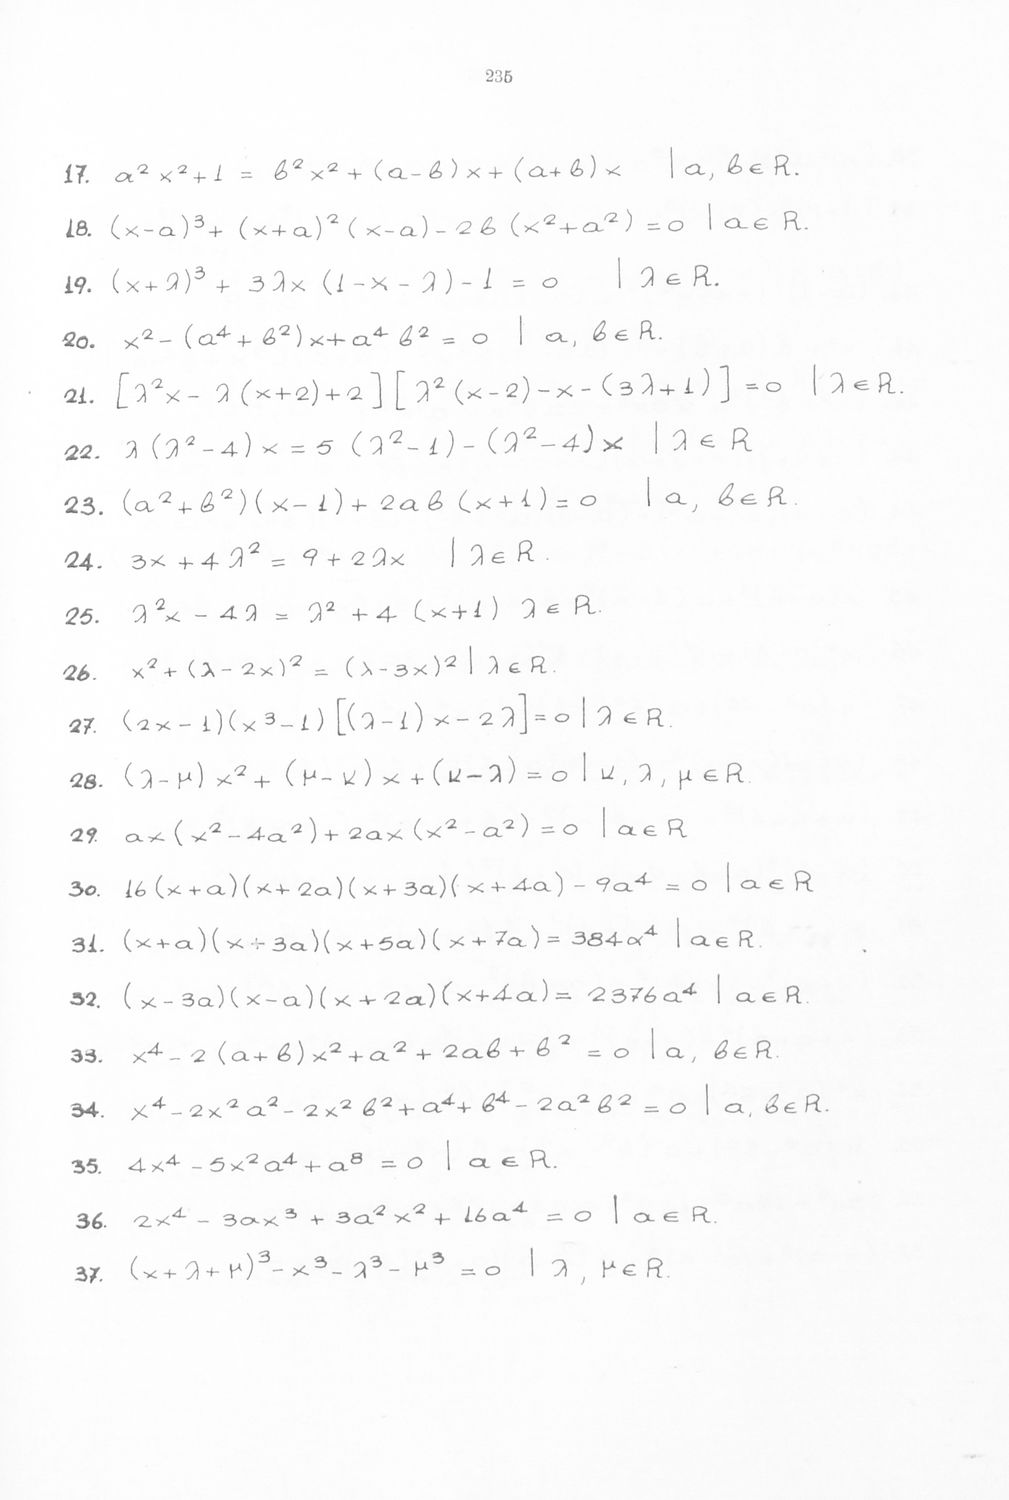 235
17. a² x² + 1 = β² x² + (a - β) x + (a + β) x | a, β ∈ R.
18. (x - a)³ + (x + a)² (x - a) - 2β (x² + a²) = 0 | a ∈ R.
19. (x + λ)³ + 3λx (1 - x - λ) - 1 = 0 | λ ∈ R.
20. x² - (a⁴ + β²) x + a⁴ β² = 0 | a, β ∈ R.
21. [λ²x - λ (x + 2) + 2] [λ² (x - 2) - x - (3λ + 1)] = 0 | λ ∈ R.
22. λ (λ² - 4) x = 5 (λ² - 1) - (λ² - 4) x | λ ∈ R
23. (a² + β²) (x - 1) + 2aβ (x + 1) = 0 | a, β ∈ R.
24. 3x + 4λ² = 9 + 2λx | λ ∈ R.
25. λ²x - 4λ = λ² + 4 (x + 1) λ ∈ R.
26. x² + (λ - 2x)² = (λ - 3x)² | λ ∈ R.
27. (2x - 1) (x³ - 1) [(λ - 1) x - 2λ] = 0 | λ ∈ R.
28. (λ - μ) x² + (μ - κ) x + (κ - λ) = 0 | κ, λ, μ ∈ R.
29. ax (x² - 4a²) + 2ax (x² - a²) = 0 | a ∈ R
30. 16 (x + a) (x + 2a) (x + 3a) (x + 4a) - 9a⁴ = 0 | a ∈ R
31. (x + a) (x + 3a) (x + 5a) (x + 7a) = 384a⁴ | a ∈ R.
32. (x - 3a) (x - a) (x + 2a) (x + 4a) = 2376a⁴ | a ∈ R.
33. x⁴ - 2 (a + β) x² + a² + 2aβ + β² = 0 | a, β ∈ R.
34. x⁴ - 2x² a² - 2x² β² + a⁴ + β⁴ - 2a² β² = 0 | a, β ∈ R.
35. 4x⁴ - 5x² a⁴ + a⁸ = 0 | a ∈ R.
36. 2x⁴ - 3ax³ + 3a² x² + 16a⁴ = 0 | a ∈ R.
37. (x + λ + μ)³ - x³ - λ³ - μ³ = 0 | λ, μ ∈ R.